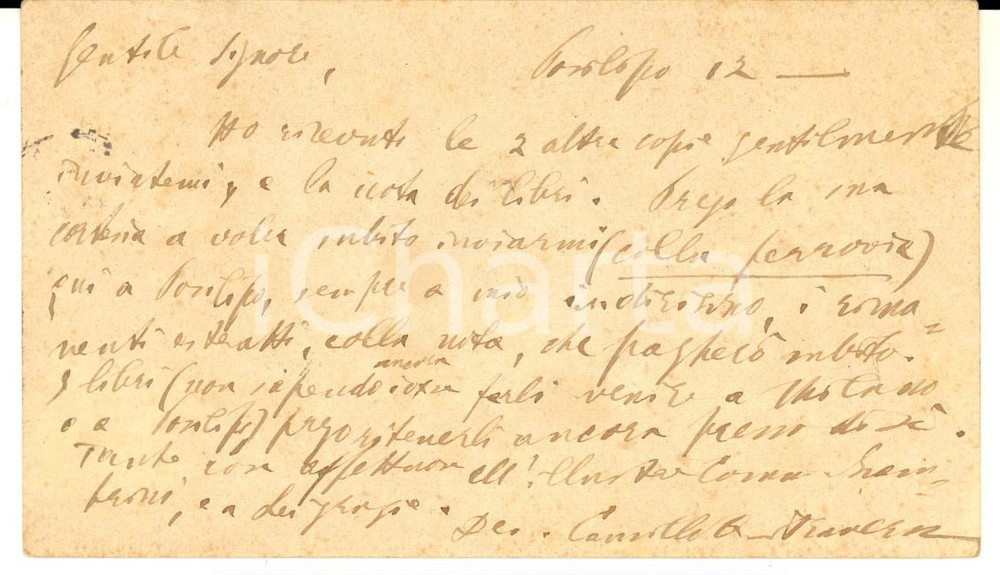 Gentile Signore, Posilipo 12 —
Ho ricevuti le 2 altre copie gentilmente
inviatemi, e la nota dei libri. Prego la sua
cortesia a voler subito inviarmi (colla ferrovia)
qui a Posilipo, sempre a mio indirizzo, i rima=
nenti estratti, colla nota, che pagherò subito.
I libri (non sapendo ancora farli venire a Milano
o a Posilipo) prego ritenerli ancora presso di sè.
Tante cose affettuose all'illustre Comm.
e a Lei grazie.
Dev. Camillo Traversa
iCharta